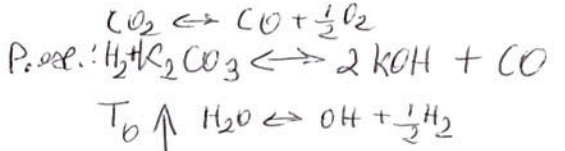 CO₂ <-> CO + ½O₂
H₂+K₂CO₃ <-> 2 KOH + CO
T₀ ↑ H₂O <-> OH + ½H₂